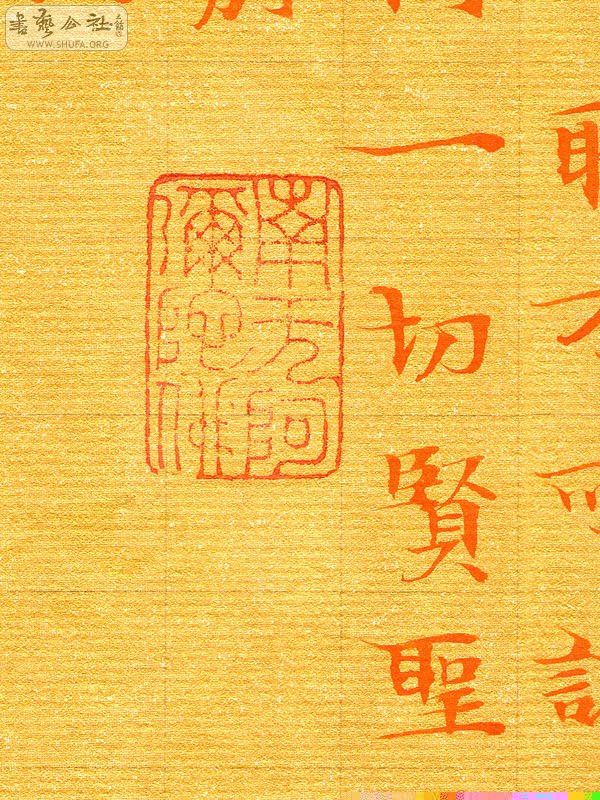 書藝公社
WWW.SHUFA.ORG
取不可說
一切賢聖
南无阿
彌陀佛